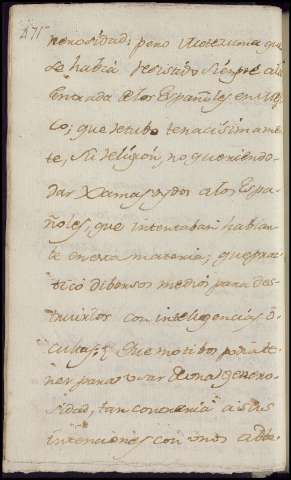 271
nerosidad; pero Moteuma que
se habia resistido siempre a la
Entrada de los Españoles en Mexi
co; que detubo tenacisimamen
te, su religion, no queriendo
dar Xamas oydos a los Espa
ñoles, que intentaban hablar
le en esta materia; que prac
ticó dibersos medios para des
truirlos con inteligencias o
cultas; Que motibos podia te
ner para usar de una genero
sidad, tan contraria a sus
intenciones con unos adbe